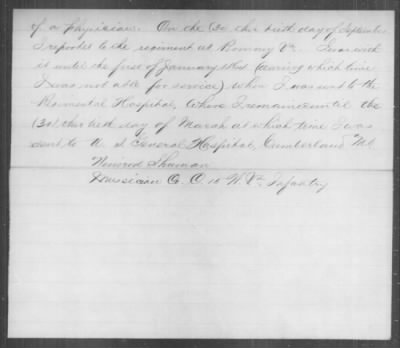 of a physician. On the (30) thir tieth day of September
I reported to the regiment at Romney Va. I was with
it until the first of January 1864 (during which time
I was not able for service) when I was sent to the
Regimental Hospital, where I remained until the
(30) thir tieth day of March at which time I was
sent to U. S. General Hospital, Cumberland Md.
Winfred Shuman
Musician Co. C. 10 W. Va. Infantry